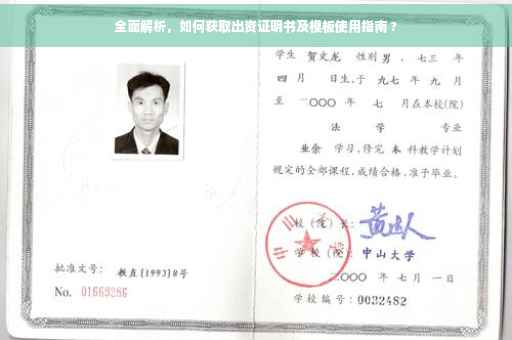 全面解析，如何获取出资证明书及模板使用指南？
学生 贺文龙 性别 男 、七三 年
四 月 日生,于 九七 年 九 月
至 二〇〇〇 年 七 月在本校(院)
法 学 专业
业余 学习,修完 本 科教学计划
规定的全部课程,成绩合格,准予毕业。
校 (院) 长:
学 校 (院): 中山大学
批准文号: 教直[1993]8号
二〇〇〇 年 七 月 一 日
No. 01669286
学校编号: 0032482